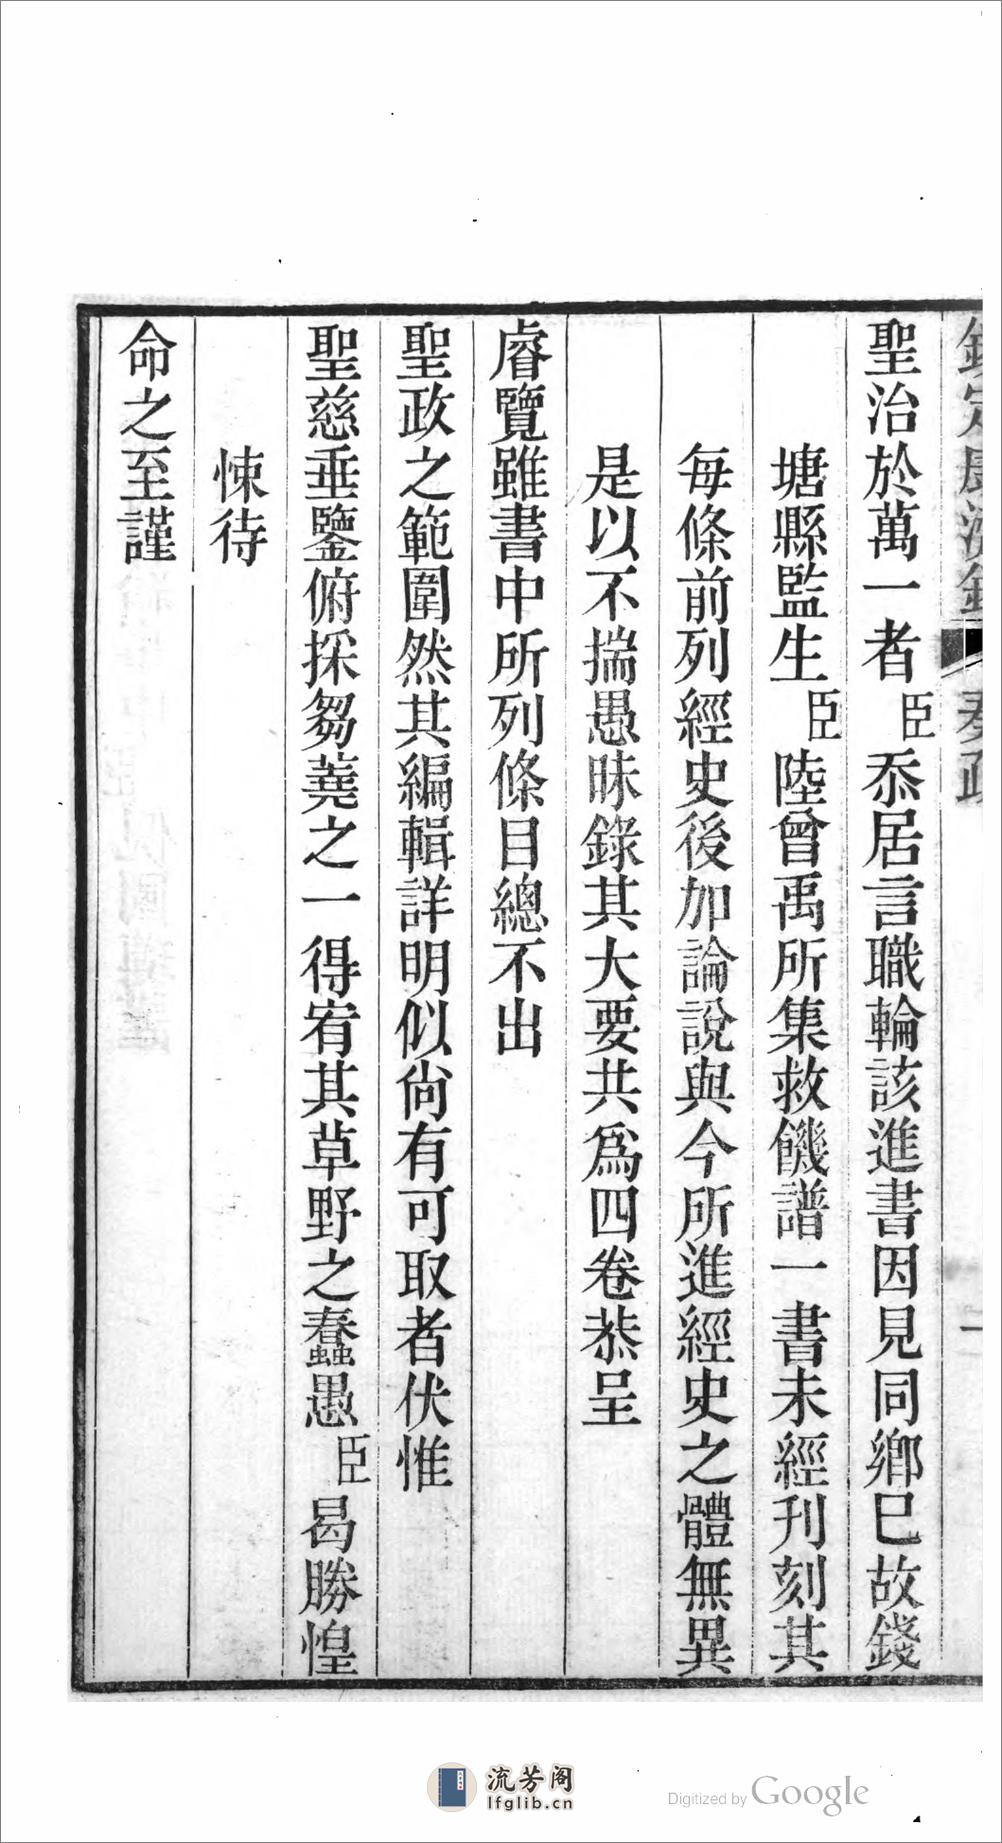 欽定康濟錄 奏疏 一
聖治於萬一者臣忝居言職輪該進書因見同鄉已故錢
塘縣監生臣陸曾禹所集救饑譜一書未經刊刻其
每條前列經史後加論說與今所進經史之體無異
是以不揣愚昧錄其大要共為四卷恭呈
睿覽雖書中所列條目總不出
聖政之範圍然其編輯詳明似尚有可取者伏惟
聖慈垂鑒俯採芻蕘之一得宥其草野之蠢愚臣曷勝惶
悚待
命之至謹
流芳阁
lfglib.cn
Digitized by Google